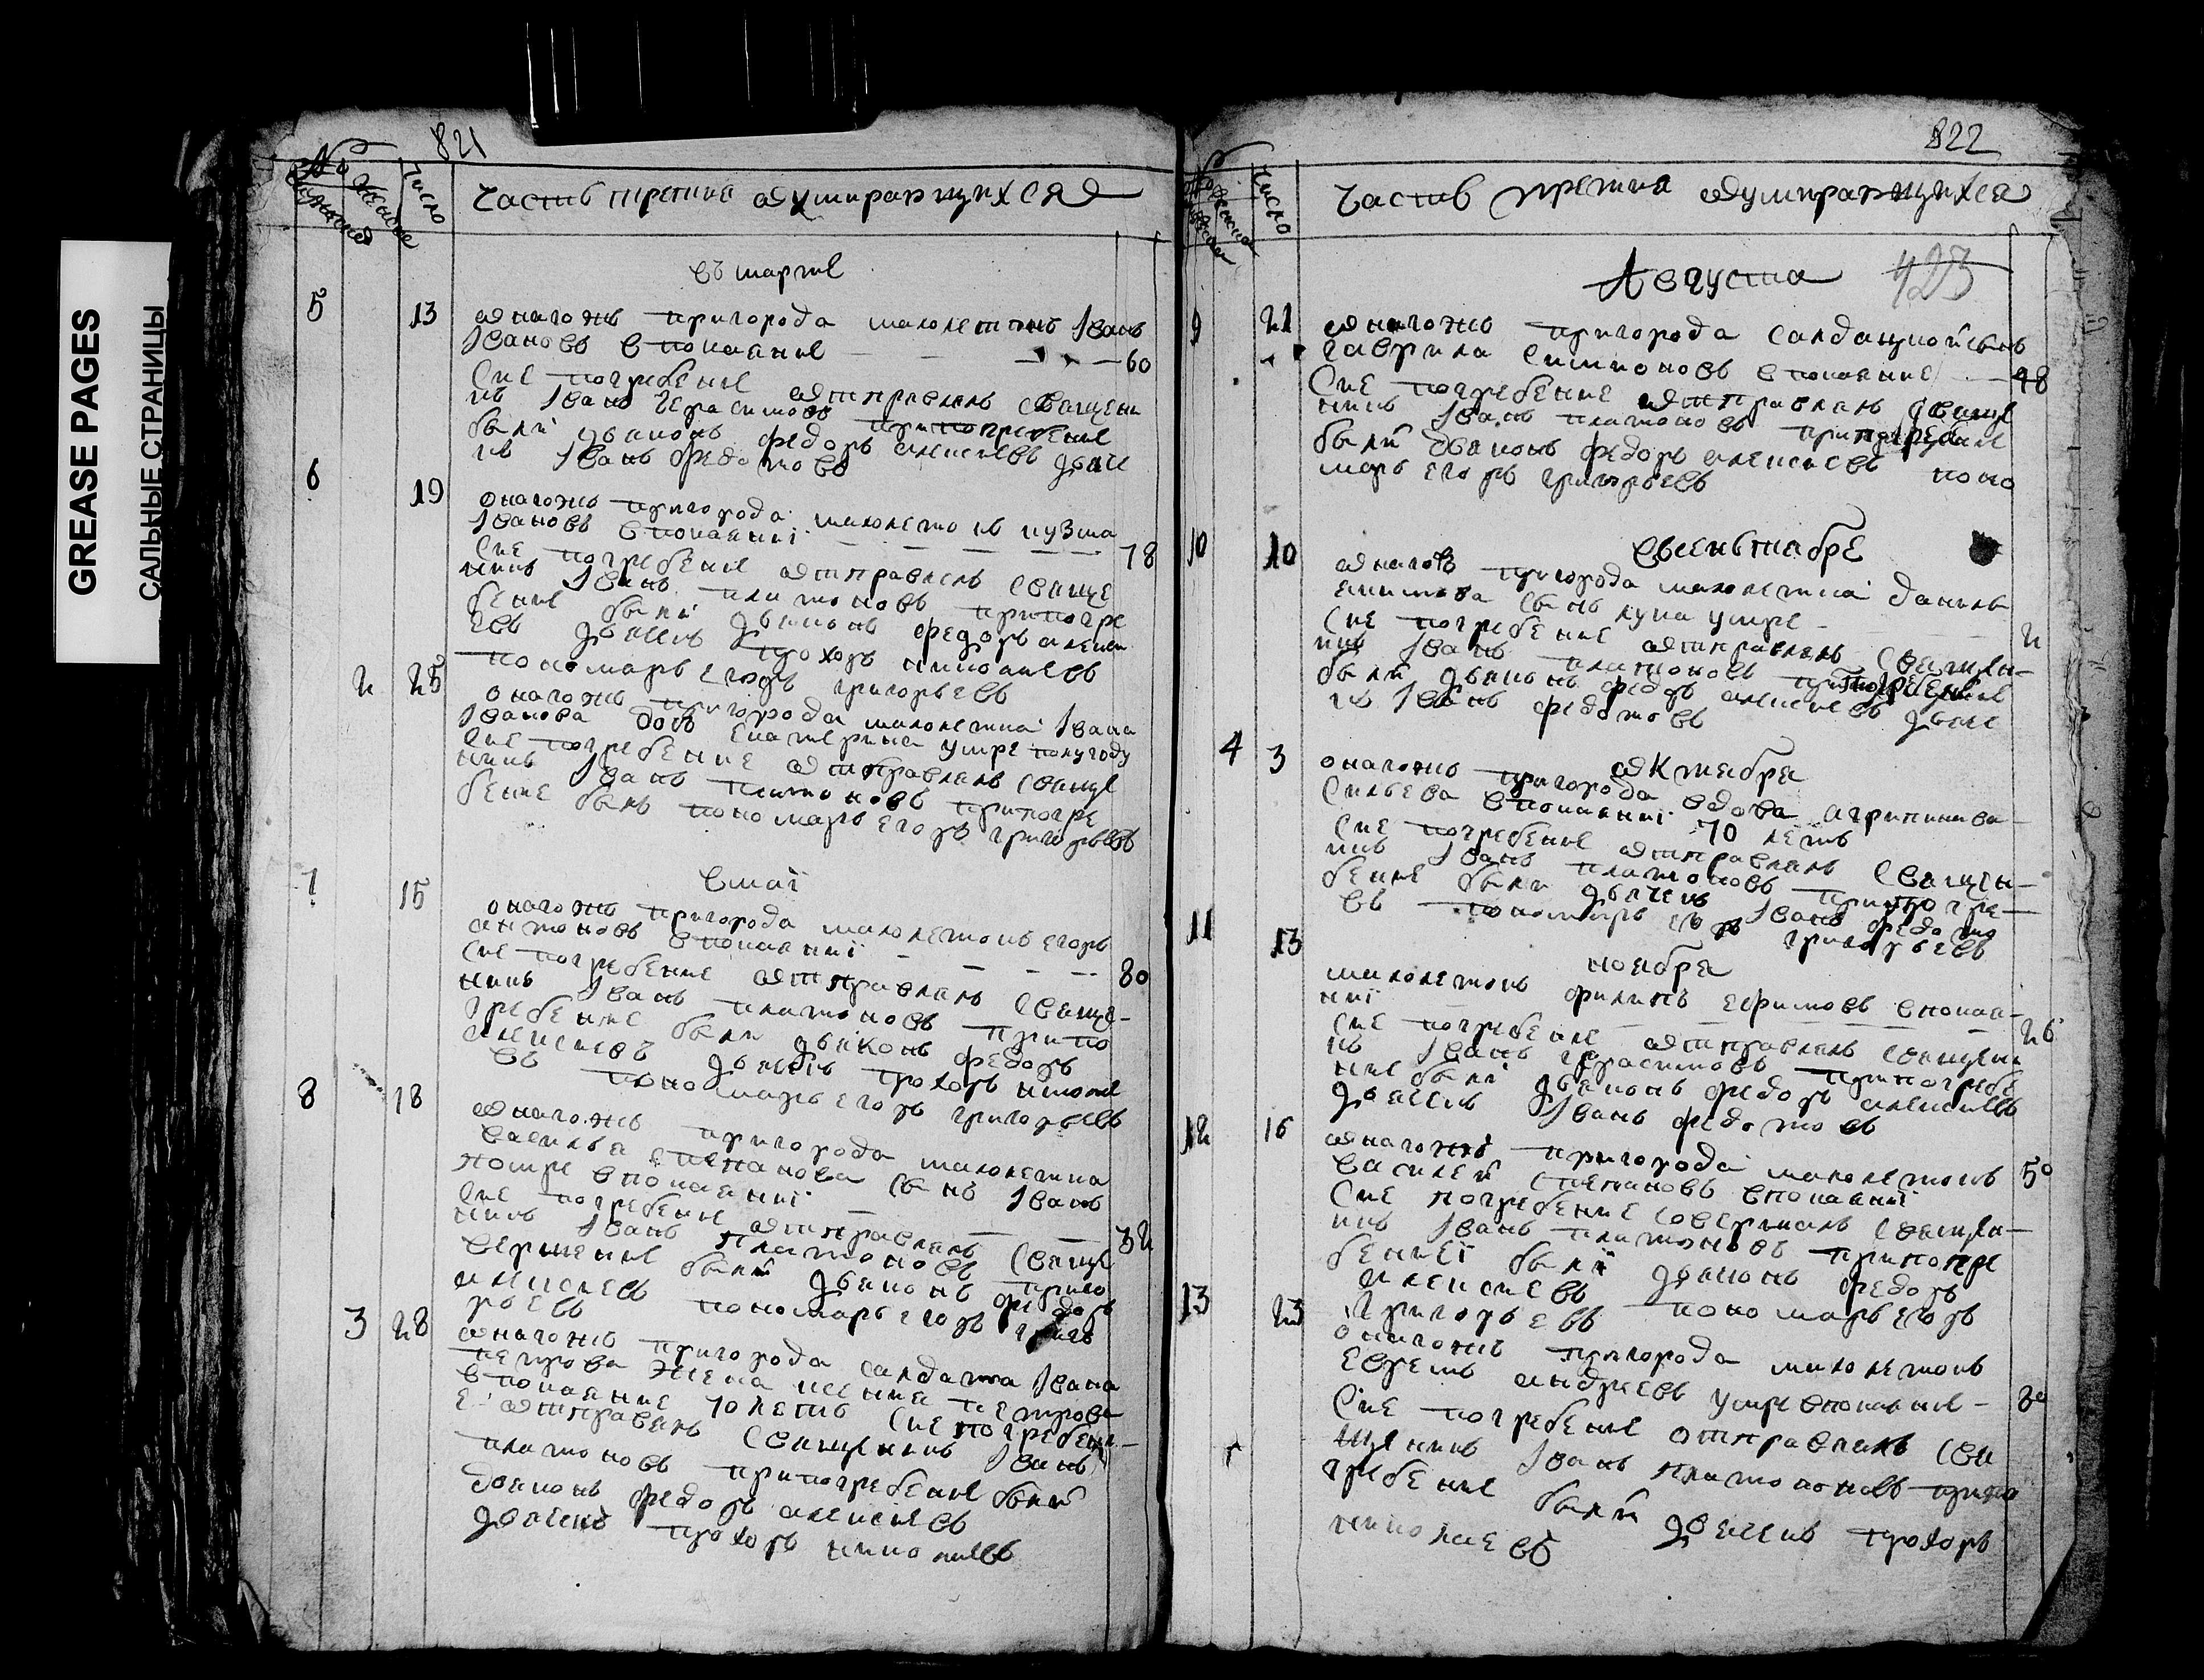 GREASE PAGES
САЛЬНЫЕ СТРАНИЦЫ
821
№
Число
Часть третия о умирающихся
въ марте
5 13 онагожъ пригорода малолетокъ Iванъ
Iвановъ в покаяние 60
Сие погребение отправлялъ священи
къ Iванъ Герасимовъ при погребение
были дьяконъ федоръ алексеевъ дьяче
къ Iванъ федотовъ
6 19 онагожъ пригорода малолетокъ кузма
Iвановъ в покаянии 78
Сие погребение отправлялъ свяще
никъ Iванъ платоновъ при погре
бение были дьяконъ федоръ алексе
евъ дьячекъ прохоръ николаевъ
пономарь Егоръ григорьевъ
2 25 онагожъ пригорода малолетка Iвана
Iванова дочь екатерина умре полугоду
Сие погребение отправлялъ священ
никъ Iванъ платоновъ при погре
бение былъ пономарь Егоръ григорьевъ
в маi
7 15 онагожъ пригорода малолетокъ егоръ
антоновъ в покаянии 80
Сие погребение отправлялъ свяще-
никъ Iванъ платоновъ при по
гребение были дьяконъ федоръ
алексеевъ дьячекъ прохоръ николае
въ пономарь егоръ григорьевъ
8 18 онагожъ пригорода малолетка
василья степанова сынъ Iванъ
помре в покаянии 32
Сие погребение отправлялъ свяще
никъ Iванъ платоновъ при по
были дьяконъ федоръ
алексеевъ пономарь егоръ григо
рьевъ
3 28 онагожъ пригорода салдата Iвана
петрова жена петрова
в покаяние 70 летъ Сие погребени
е отправлялъ священикъ Iванъ
платоновъ при погребение были
дьяконъ федоръ алексеевъ
дьячекъ прохоръ николаевъ
822
№
Число
Часть третия о умирающихся
Августа 423
9 21 онагожъ пригорода салдацкой сынъ
гаврила симионовъ в покаяние 48
Сие погребение отправлялъ свяще
никъ Iванъ платоновъ при погребение
были дьяконъ федоръ алексеевъ поно
марь егоръ григорьевъ
в сеньтабре
10 10 онагожъ пригорода малолетка данила
сынъ лука умре 2
Сие погребение отправлялъ священ-
никъ Iванъ платоновъ при погребение
были дьяконъ федоръ алексеевъ дьяче
къ Iванъ федотовъ
октября
4 3 онагожъ пригорода вдова агрипина ва
сильева в покаянии 70 летъ
Сие погребение отправлялъ священ-
никъ Iванъ платоновъ при погре-
бение были дьячекъ Iванъ федото
въ пономарь егоръ григорьевъ
ноября
11 13 малолетокъ филипъ ефимовъ в покая-
нии 26
Сие погребение отправлялъ священи
къ Iванъ герасимовъ при погребе
ние были дьяконъ федоръ алексеевъ
дьячекъ Iванъ федотовъ
12 16 онагожъ пригорода малолетокъ 50
василей степановъ в покаянии
Сие погребение совершалъ священ-
никъ Iванъ платоновъ при погре
бении были дьяконъ федоръ
алексеевъ пономарь егоръ
григорьевъ
13 23 онагожъ пригорода малолетокъ
ефремъ андреевъ умре в покаяние - 30
Сие погребение отправлялъ свя
щеникъ Iванъ платоновъ при по
гребение были дьячекъ прохоръ
николаевъ